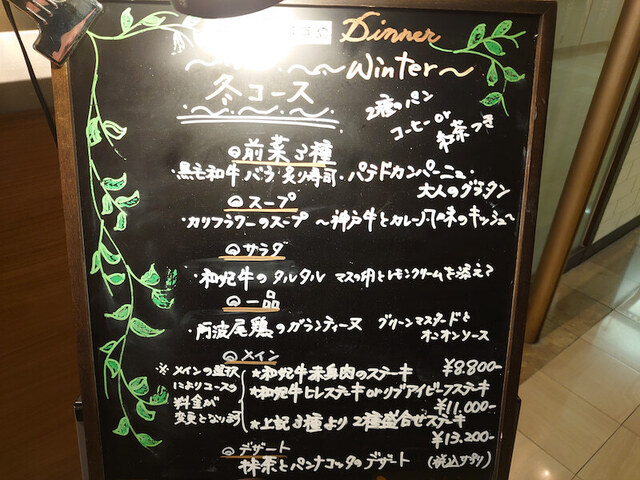 Dinner
～Winter～
冬コース
2種のパン
コーヒーor
紅茶つき
◎前菜3種
・黒毛和牛バラ炙り寿司・パテドカンパーニュ・
大人のグラタン
◎スープ
・カリフラワーのスープ ～神戸牛とカレー風味のキッシュ～
◎サラダ
・和妃牛のタルタル マスの卵とレモンクリームを添えて
◎一品
・阿波尾鶏のガランティーヌ グリーンマスタードと
オニオンソース
◎メイン
※メインの選択
によりコースの
料金が
変更となります
★和妃牛赤身肉のステーキ ¥8.800-
★和妃牛ヒレステーキorリブアイビーフステーキ
¥11.000-
★上記3種より2種盛合せステーキ
¥13.200-
◎デザート
抹茶とパンナコッタのデザート (税込サ別)